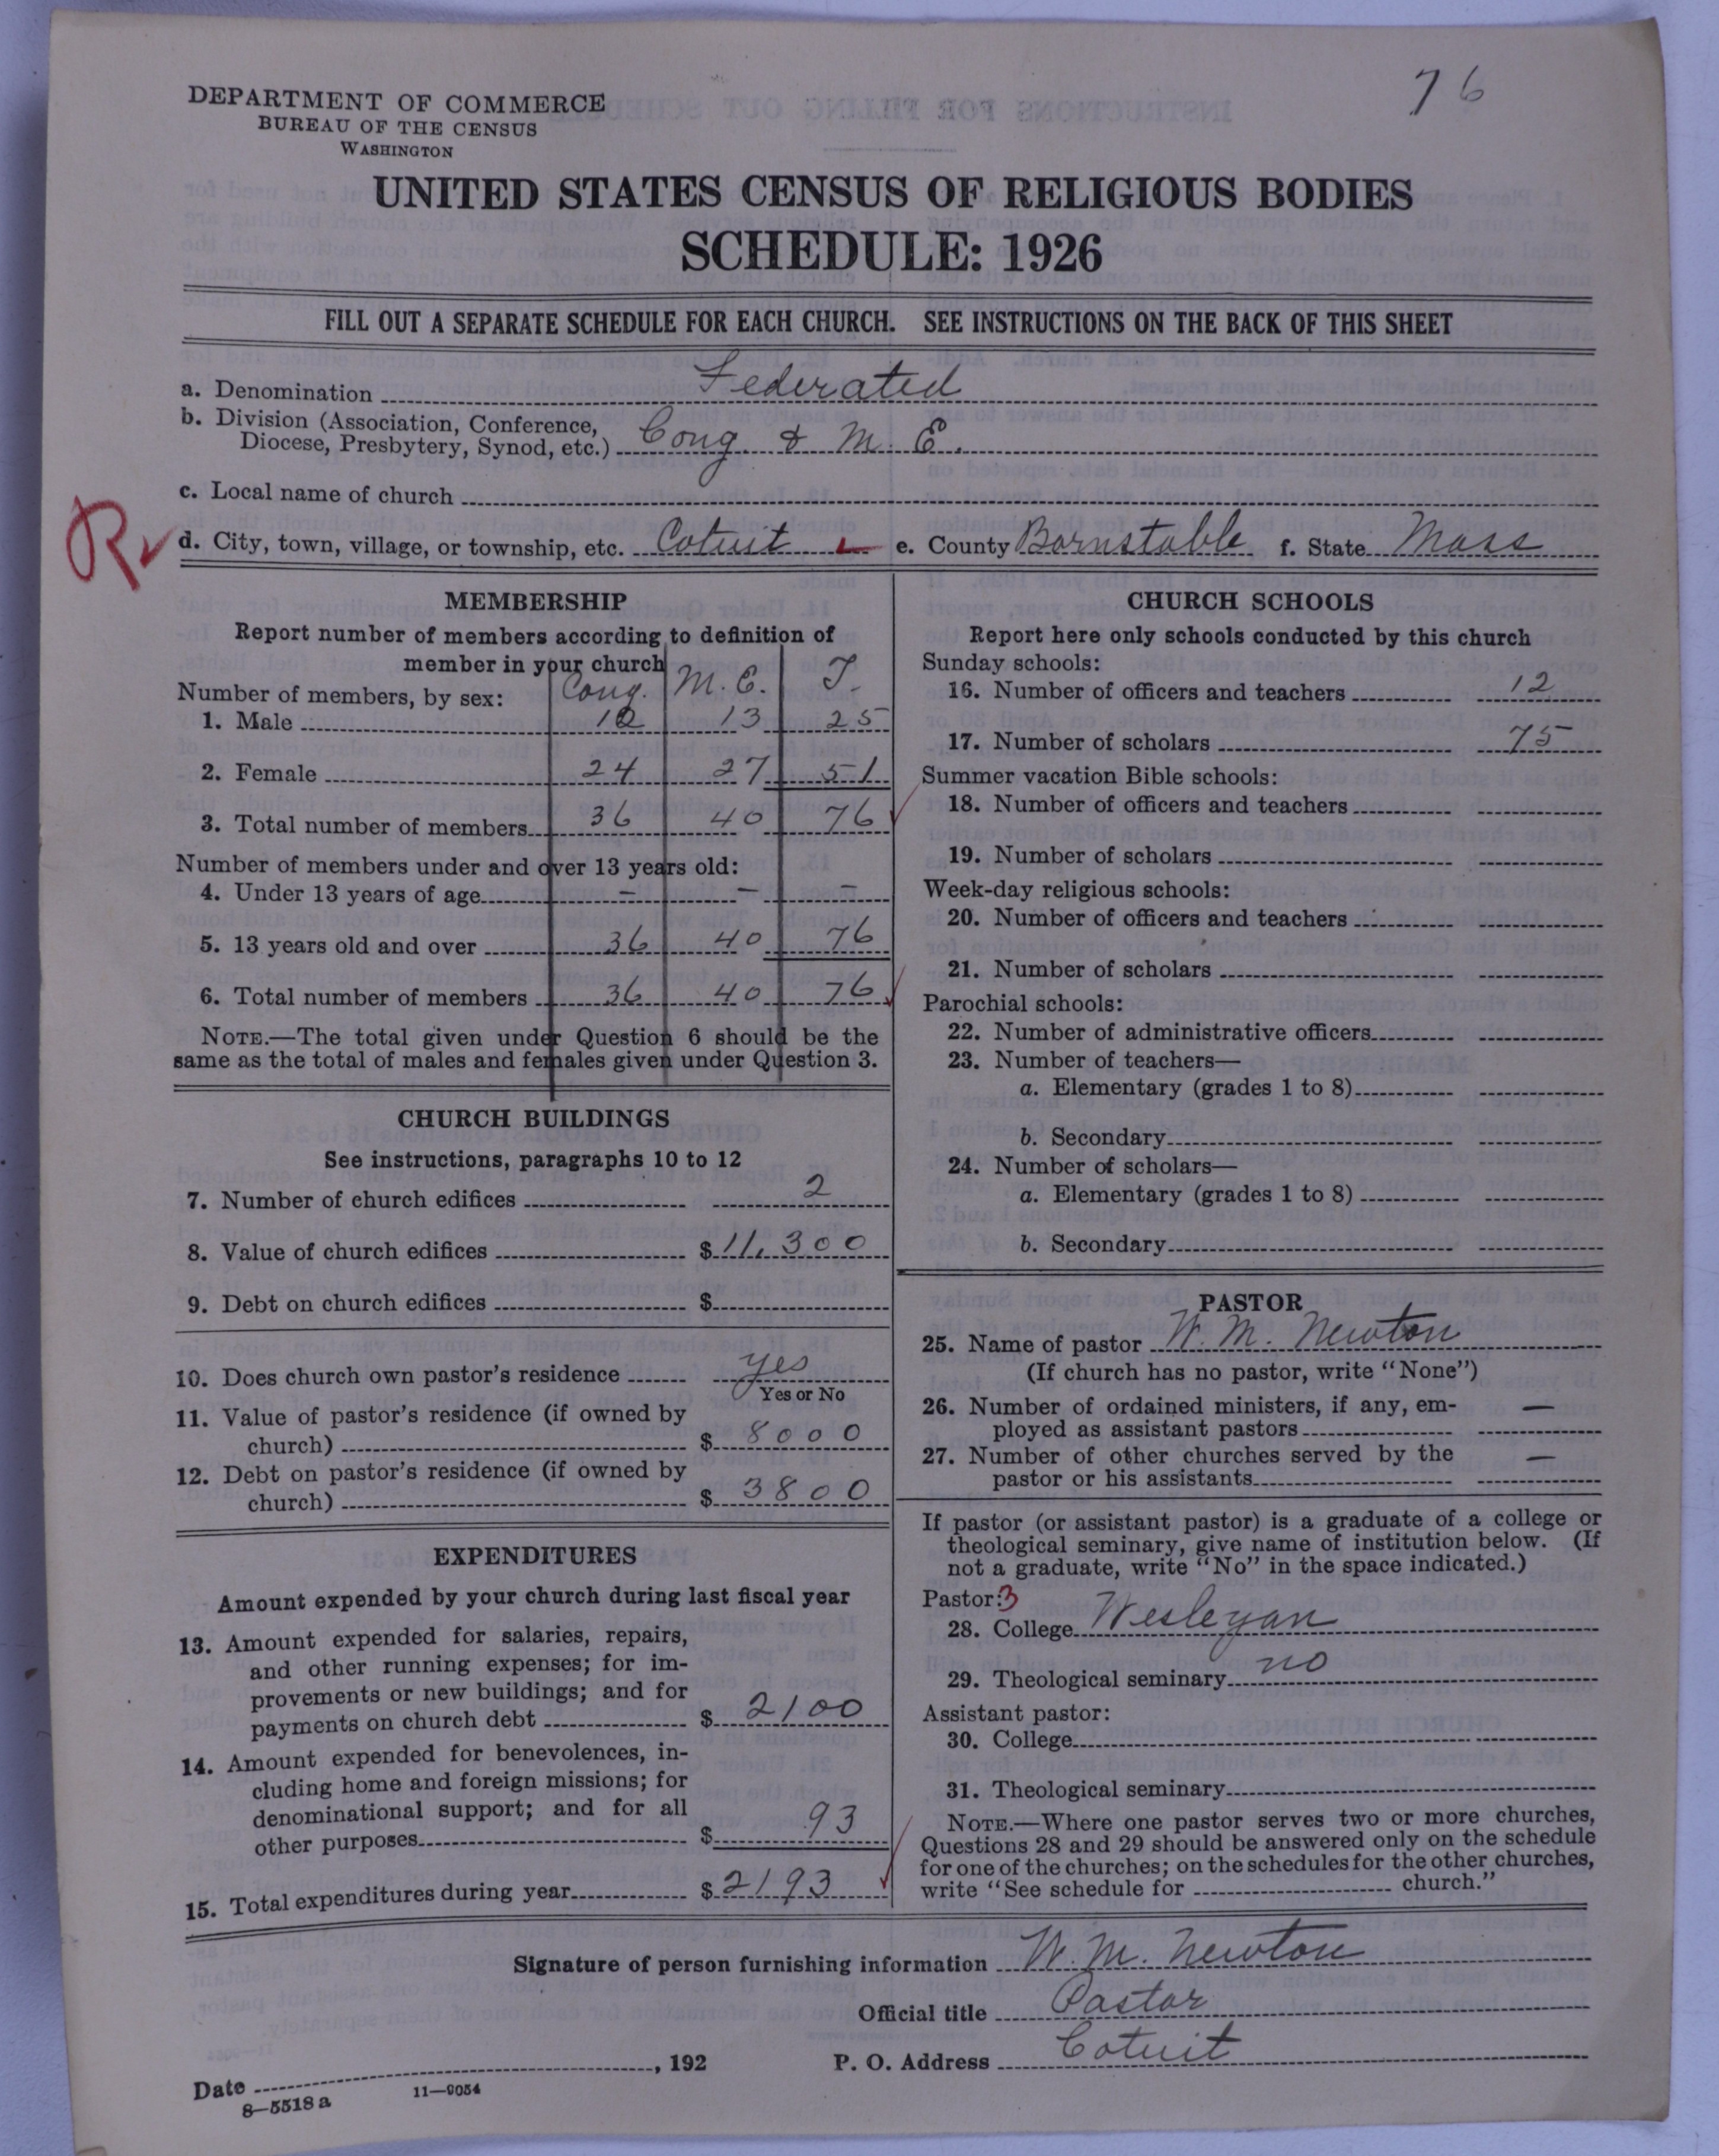 76
DEPARTMENT OF COMMERCE
BUREAU OF THE CENSUS
WASHINGTON
UNITED STATES CENSUS OF RELIGIOUS BODIES
SCHEDULE: 1926
FILL OUT A SEPARATE SCHEDULE FOR EACH CHURCH. SEE INSTRUCTIONS ON THE BACK OF THIS SHEET
a. Denomination Federated
b. Division (Association, Conference,
Diocese, Presbytery, Synod, etc.) Cong. & M. E.
c. Local name of church
R
d. City, town, village, or township, etc. Cotuit e. County Barnstable f. State Mass
MEMBERSHIP
Report number of members according to definition of
member in your church
Number of members, by sex: Cong. M. E. T.
1. Male 12 13 25
2. Female 24 27 51
3. Total number of members 36 40 76
Number of members under and over 13 years old:
4. Under 13 years of age — — —
5. 13 years old and over 36 40 76
6. Total number of members 36 40 76
NOTE.—The total given under Question 6 should be the
same as the total of males and females given under Question 3.
CHURCH BUILDINGS
See instructions, paragraphs 10 to 12
7. Number of church edifices 2
8. Value of church edifices $ 11,300
9. Debt on church edifices $
10. Does church own pastor's residence yes
Yes or No
11. Value of pastor's residence (if owned by
church) $ 8000
12. Debt on pastor's residence (if owned by
church) $ 3800
EXPENDITURES
Amount expended by your church during last fiscal year
13. Amount expended for salaries, repairs,
and other running expenses; for im-
provements or new buildings; and for
payments on church debt $ 2100
14. Amount expended for benevolences, in-
cluding home and foreign missions; for
denominational support; and for all
other purposes $ 93
15. Total expenditures during year $ 2193
CHURCH SCHOOLS
Report here only schools conducted by this church
Sunday schools:
16. Number of officers and teachers 12
17. Number of scholars 75
Summer vacation Bible schools:
18. Number of officers and teachers
19. Number of scholars
Week-day religious schools:
20. Number of officers and teachers
21. Number of scholars
Parochial schools:
22. Number of administrative officers
23. Number of teachers—
a. Elementary (grades 1 to 8)
b. Secondary
24. Number of scholars—
a. Elementary (grades 1 to 8)
b. Secondary
PASTOR
25. Name of pastor W. M. Newton
(If church has no pastor, write "None")
26. Number of ordained ministers, if any, em-
ployed as assistant pastors —
27. Number of other churches served by the
pastor or his assistants —
If pastor (or assistant pastor) is a graduate of a college or
theological seminary, give name of institution below. (If
not a graduate, write "No" in the space indicated.)
Pastor: 3
28. College Wesleyan
29. Theological seminary no
Assistant pastor:
30. College
31. Theological seminary
NOTE.—Where one pastor serves two or more churches,
Questions 28 and 29 should be answered only on the schedule
for one of the churches; on the schedules for the other churches,
write "See schedule for church."
Signature of person furnishing information W. M. Newton
Official title Pastor
Date , 192 P. O. Address Cotuit
8—5518 a 11—9054